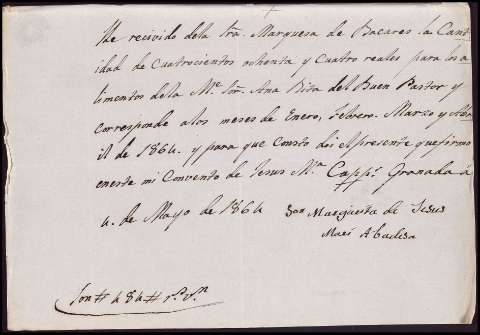 He recivido dela Sra. Marquesa de Bacares la Cant
idad de Cuatrocientos ochenta y Cuatro reales para los a
limentos dela Me. Sor. Ana Rita del Buen Pastor y
corresponde alos meses de Enero, Febrero. Marzo y Abr
il de 1864. y para que Conste doi el presente que firmo
eneste mi Convento de Jesus Ma. Capps. Granada á
4. de Mayo de 1864
Sor Margarita de Jesus
María Abadesa
Son # 484 # rs. vn.